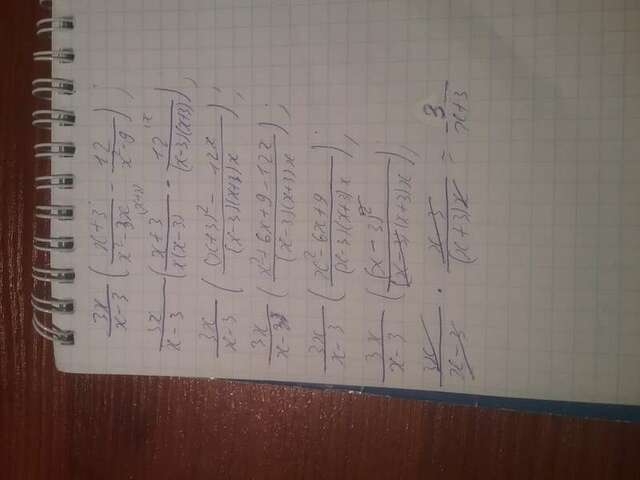 3x/(x-3) ( (x+3)/(x²-3x) - 12/(x²-9) );
3x/(x-3) ( (x+3)/(x(x-3)) (x+3) - 12/((x-3)(x+3)) x );
3x/(x-3) ( ((x+3)² - 12x)/((x-3)(x+3)x) );
3x/(x-3) ( (x²+6x+9-12x)/((x-3)(x+3)x) );
3x/(x-3) ( (x²-6x+9)/((x-3)(x+3)x) );
3x/(x-3) ( (x-3)²/((x-3)(x+3)x) );
3x/(x-3) · (x-3)/((x+3)x) = 3/(x+3)